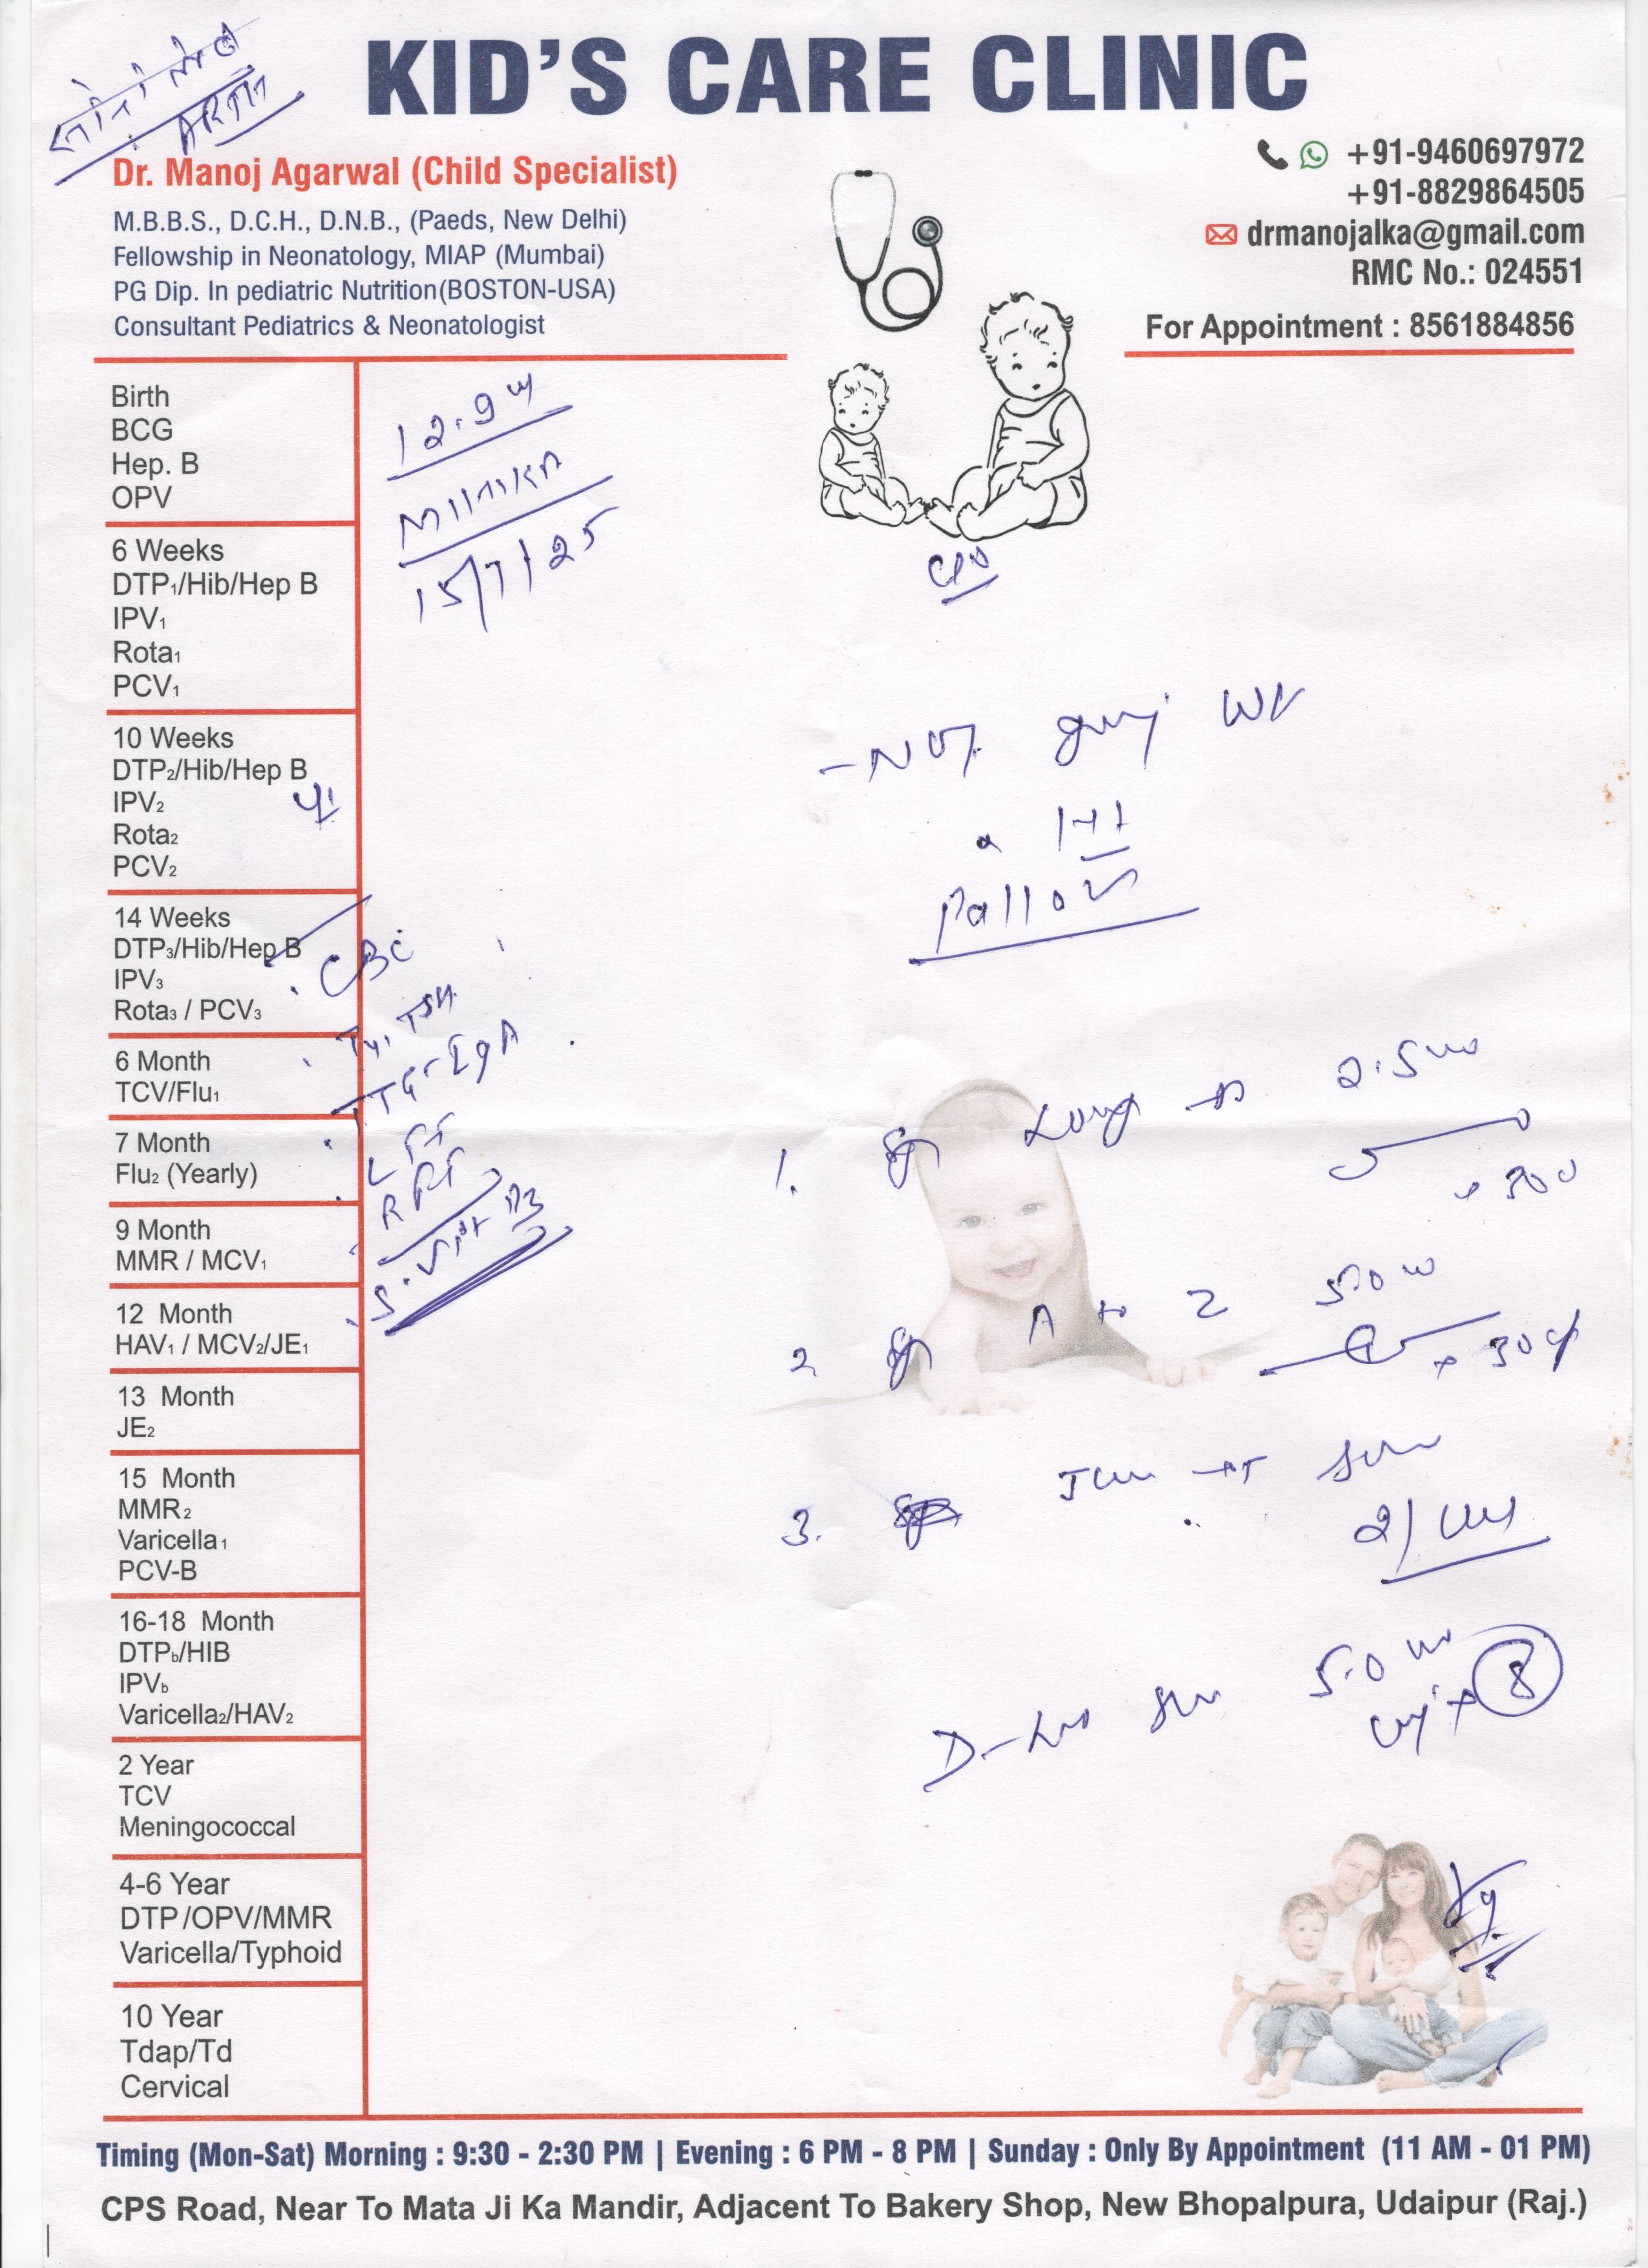 KID'S CARE CLINIC
Dr. Manoj Agarwal (Child Specialist)
M.B.B.S., D.C.H., D.N.B., (Paeds, New Delhi)
Fellowship in Neonatology, MIAP (Mumbai)
PG Dip. In pediatric Nutrition(BOSTON-USA)
Consultant Pediatrics & Neonatologist
+91-9460697972
+91-8829864505
drmanojalka@gmail.com
RMC No.: 024551
For Appointment : 8561884856
Birth
BCG
Hep. B
OPV
6 Weeks
DTP₁/Hib/Hep B
IPV₁
Rota₁
PCV₁
10 Weeks
DTP₂/Hib/Hep B
IPV₂
Rota₂
PCV₂
14 Weeks
DTP₃/Hib/Hep B
IPV₃
Rota₃ / PCV₃
6 Month
TCV/Flu₁
7 Month
Flu₂ (Yearly)
9 Month
MMR / MCV₁
12 Month
HAV₁ / MCV₂/JE₁
13 Month
JE₂
15 Month
MMR₂
Varicella₁
PCV-B
16-18 Month
DTPb/HIB
IPVb
Varicella₂/HAV₂
2 Year
TCV
Meningococcal
4-6 Year
DTP/OPV/MMR
Varicella/Typhoid
10 Year
Tdap/Td
Cervical
12.9
15/7/25
CBC
TSH
TTG-IgA
LFT
RFT
S. Vit D3
C/O
Pallor
1. 2.5
2 A to Z 5.0
3.
5.0
8
Timing (Mon-Sat) Morning : 9:30 - 2:30 PM | Evening : 6 PM - 8 PM | Sunday : Only By Appointment (11 AM - 01 PM)
CPS Road, Near To Mata Ji Ka Mandir, Adjacent To Bakery Shop, New Bhopalpura, Udaipur (Raj.)